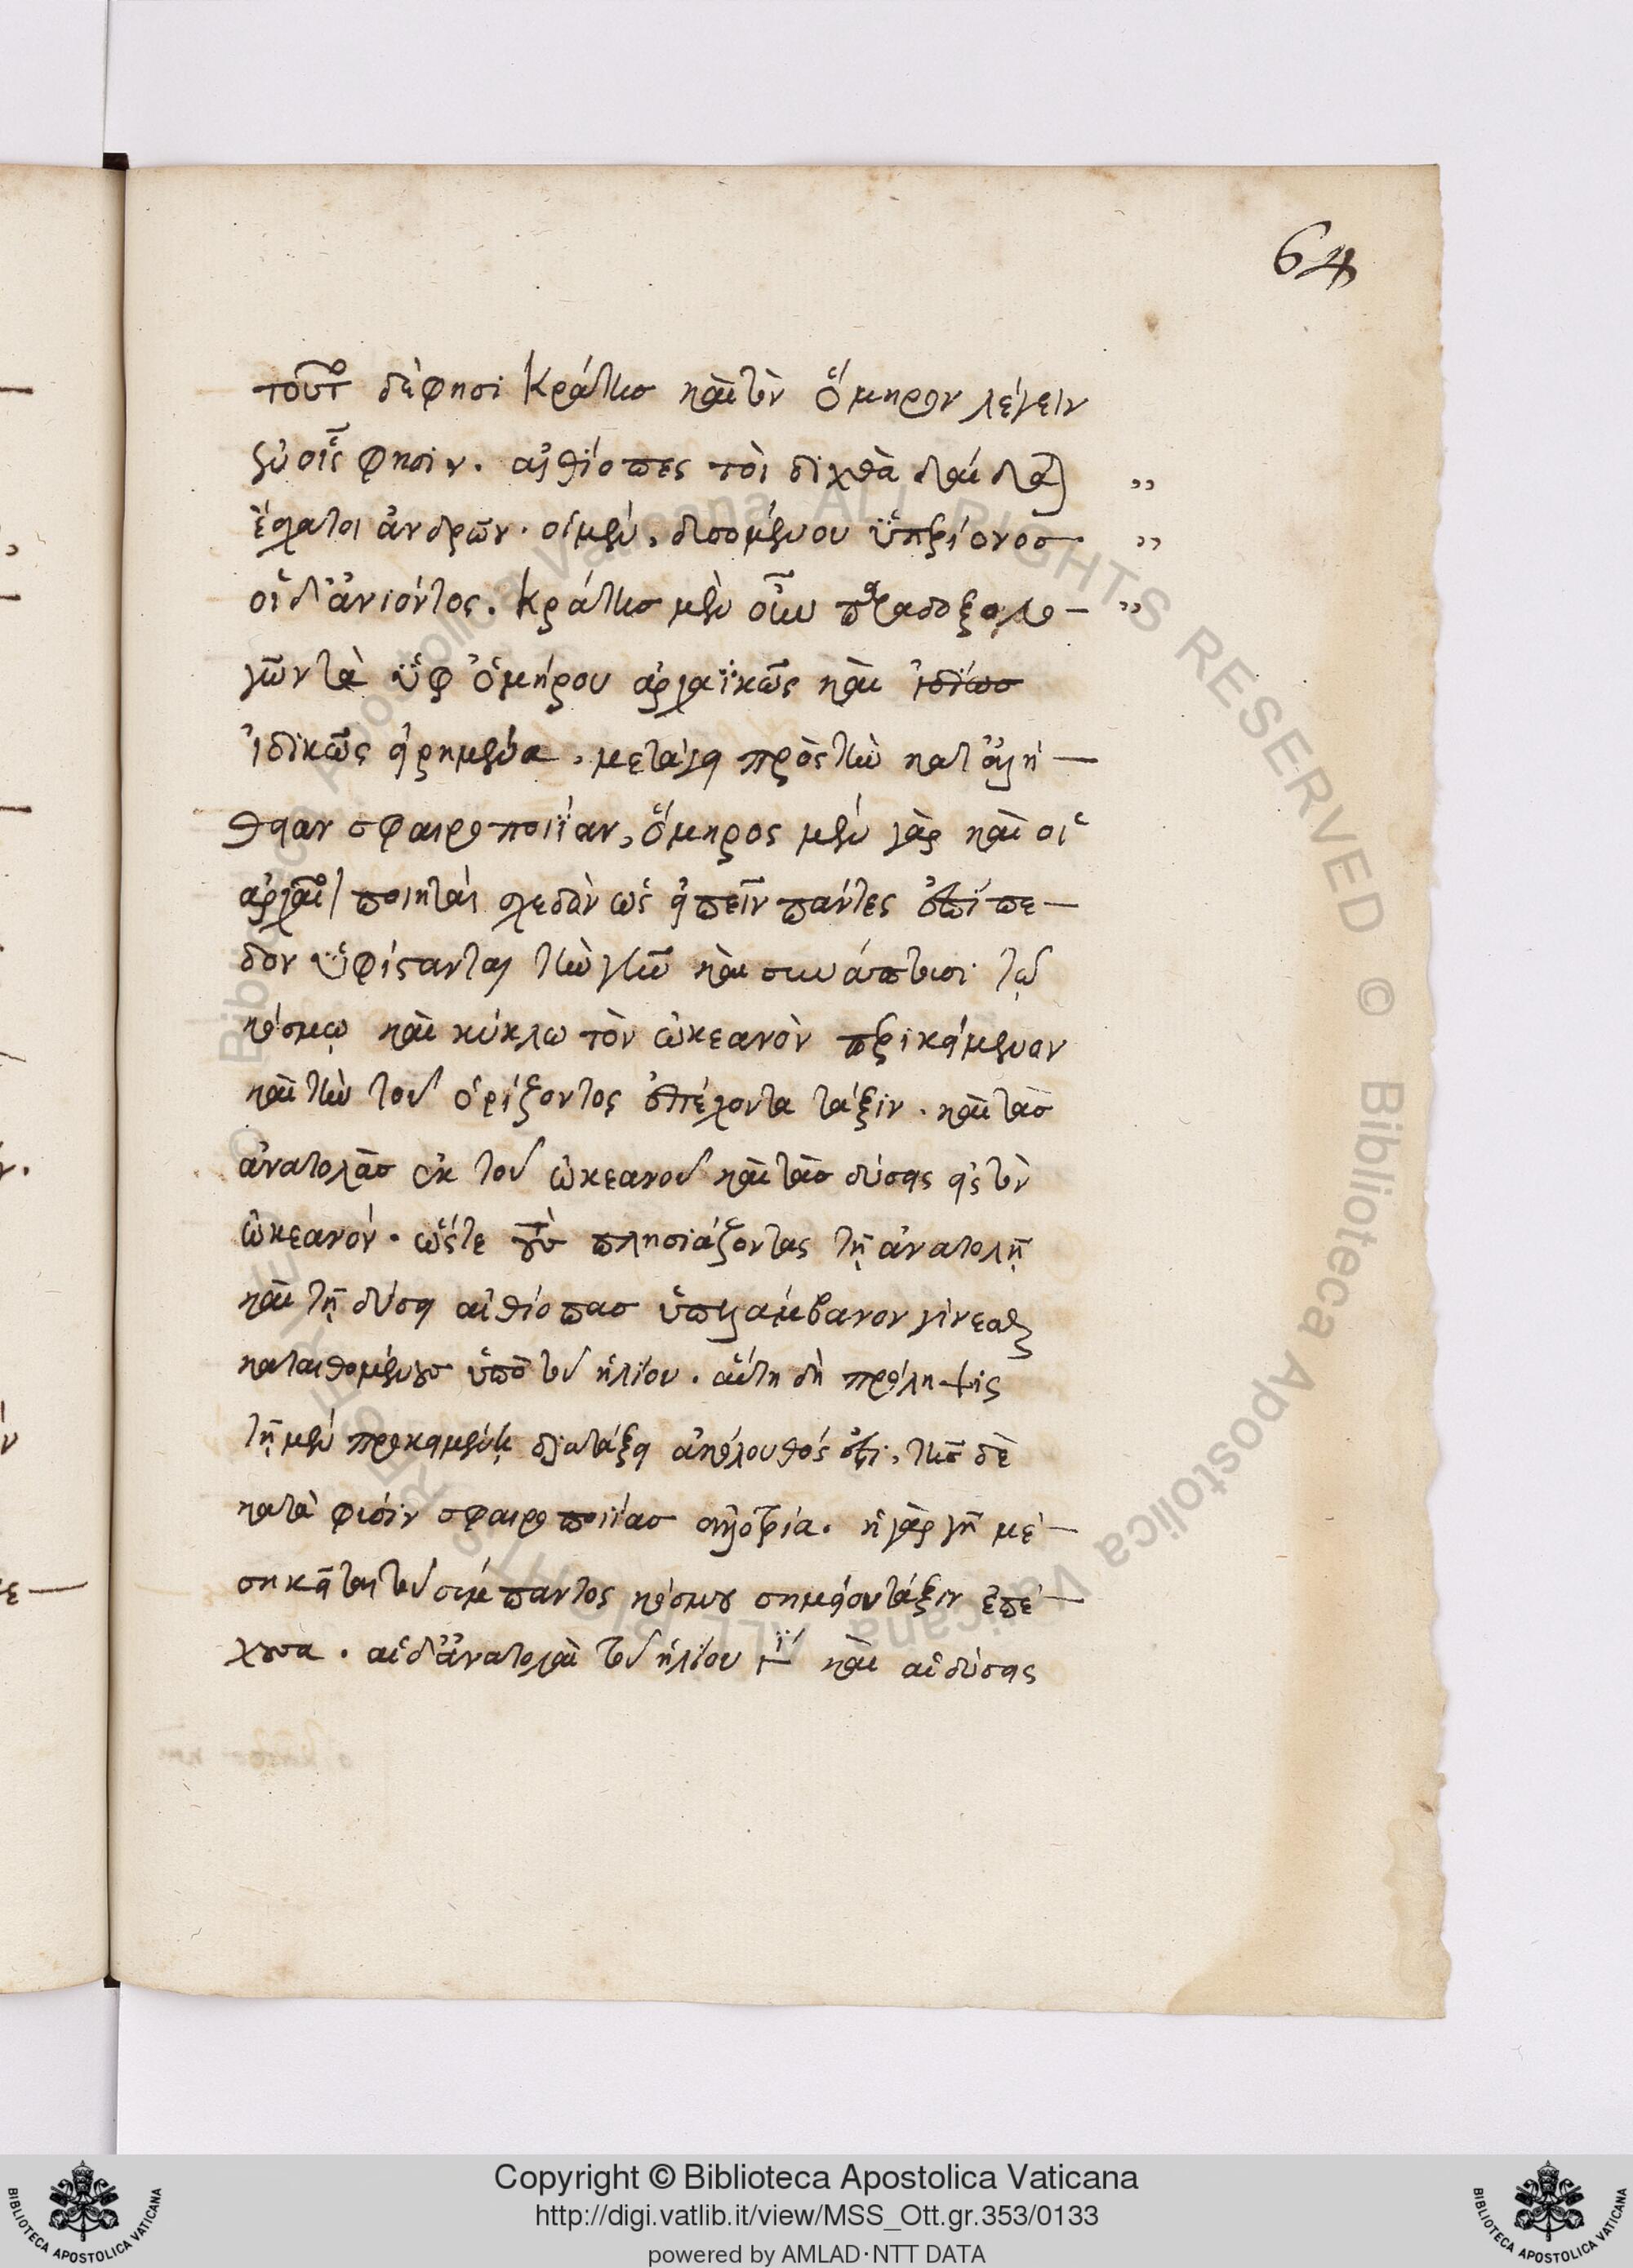 64
τοῦτο δέ φησι Κράτης καὶ τὸν ὅμηρον λέγειν
ἐν οἷς φησίν. αἰθίοπες τοὶ διχθὰ δεδαίαται ,,
ἔσχατοι ἀνδρῶν. οἱ μὲν, δυσομένου ὑπερίονος ,,
οἱ δ' ἀνιόντος. Κράτης μὲν οὖν παραδοξολο- ,,
γῶν τὰ ὑφ' ὁμήρου ἀρχαϊκῶς καὶ ἰδίως
ἰδικῶς εἰρημένα, μετάγει πρὸς τὴν κατ' ἀλή-
θειαν σφαιροποιΐαν, ὅμηρος μὲν γὰρ καὶ οἱ
ἀρχαῖοι ποιηταὶ σχεδὸν ὡς εἰπεῖν πάντες ἐπίπε-
δον ὑφίστανται τὴν γῆν καὶ συνάπτουσι τῷ
κόσμῳ καὶ κύκλω τὸν ὠκεανὸν περικείμενον
καὶ τὴν τοῦ ὁρίζοντος ἐπέχοντα τάξιν. καὶ τὰς
ἀνατολὰς ἐκ τοῦ ὠκεανοῦ καὶ τὰς δύσεις εἰς τὸν
ὠκεανόν. ὥστε τοὺς πλησιάζοντας τῇ ἀνατολῇ
καὶ τῇ δύσει αἰθίοπας ὑπελάμβανον γίνεσθαι
καταιθομένους ὑπὸ τοῦ ἡλίου. αὕτη δὴ πρόληψις
τῇ μὲν προκειμένῃ διατάξει ἀκόλουθός ἐστι, τῆς δὲ
κατὰ φύσιν σφαιροποιΐας ἀλλοτρία. ἡ γὰρ γῆ μέ-
ση κεῖται τοῦ σύμπαντος κόσμου σημείου τάξιν ἐπέ-
χουσα. αἱ δ' ἀνατολαὶ τοῦ ἡλίου καὶ αἱ δύσεις
Copyright © Biblioteca Apostolica Vaticana
http://digi.vatlib.it/view/MSS_Ott.gr.353/0133
powered by AMLAD·NTT DATA